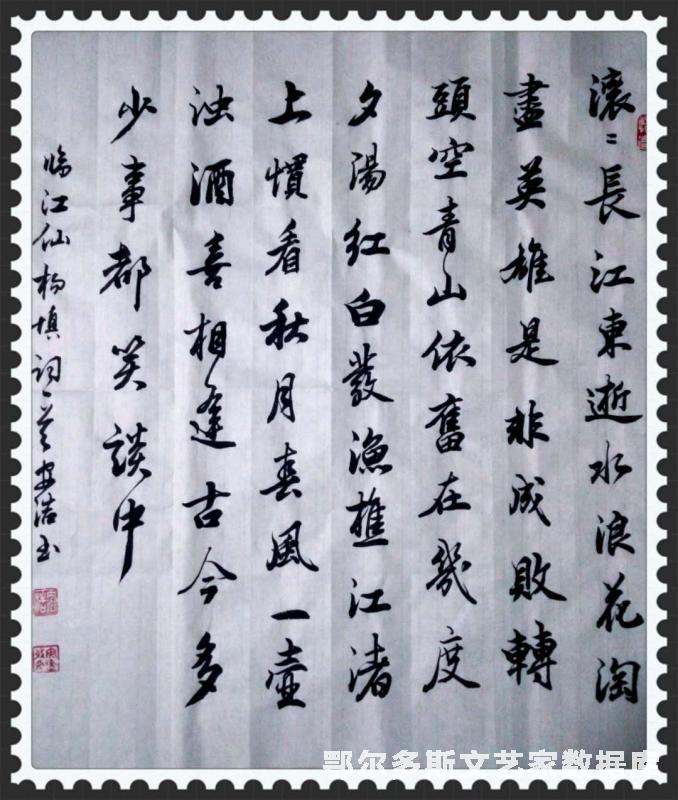 滚〻長江東逝水浪花淘
盡英雄是非成敗轉
頭空青山依舊在幾度
夕陽紅白發漁樵江渚
上慣看秋月春風一壺
浊酒喜相逢古今多
少事都笑談中
临江仙杨慎词一首安浩书
鄂尔多斯文艺家数据库